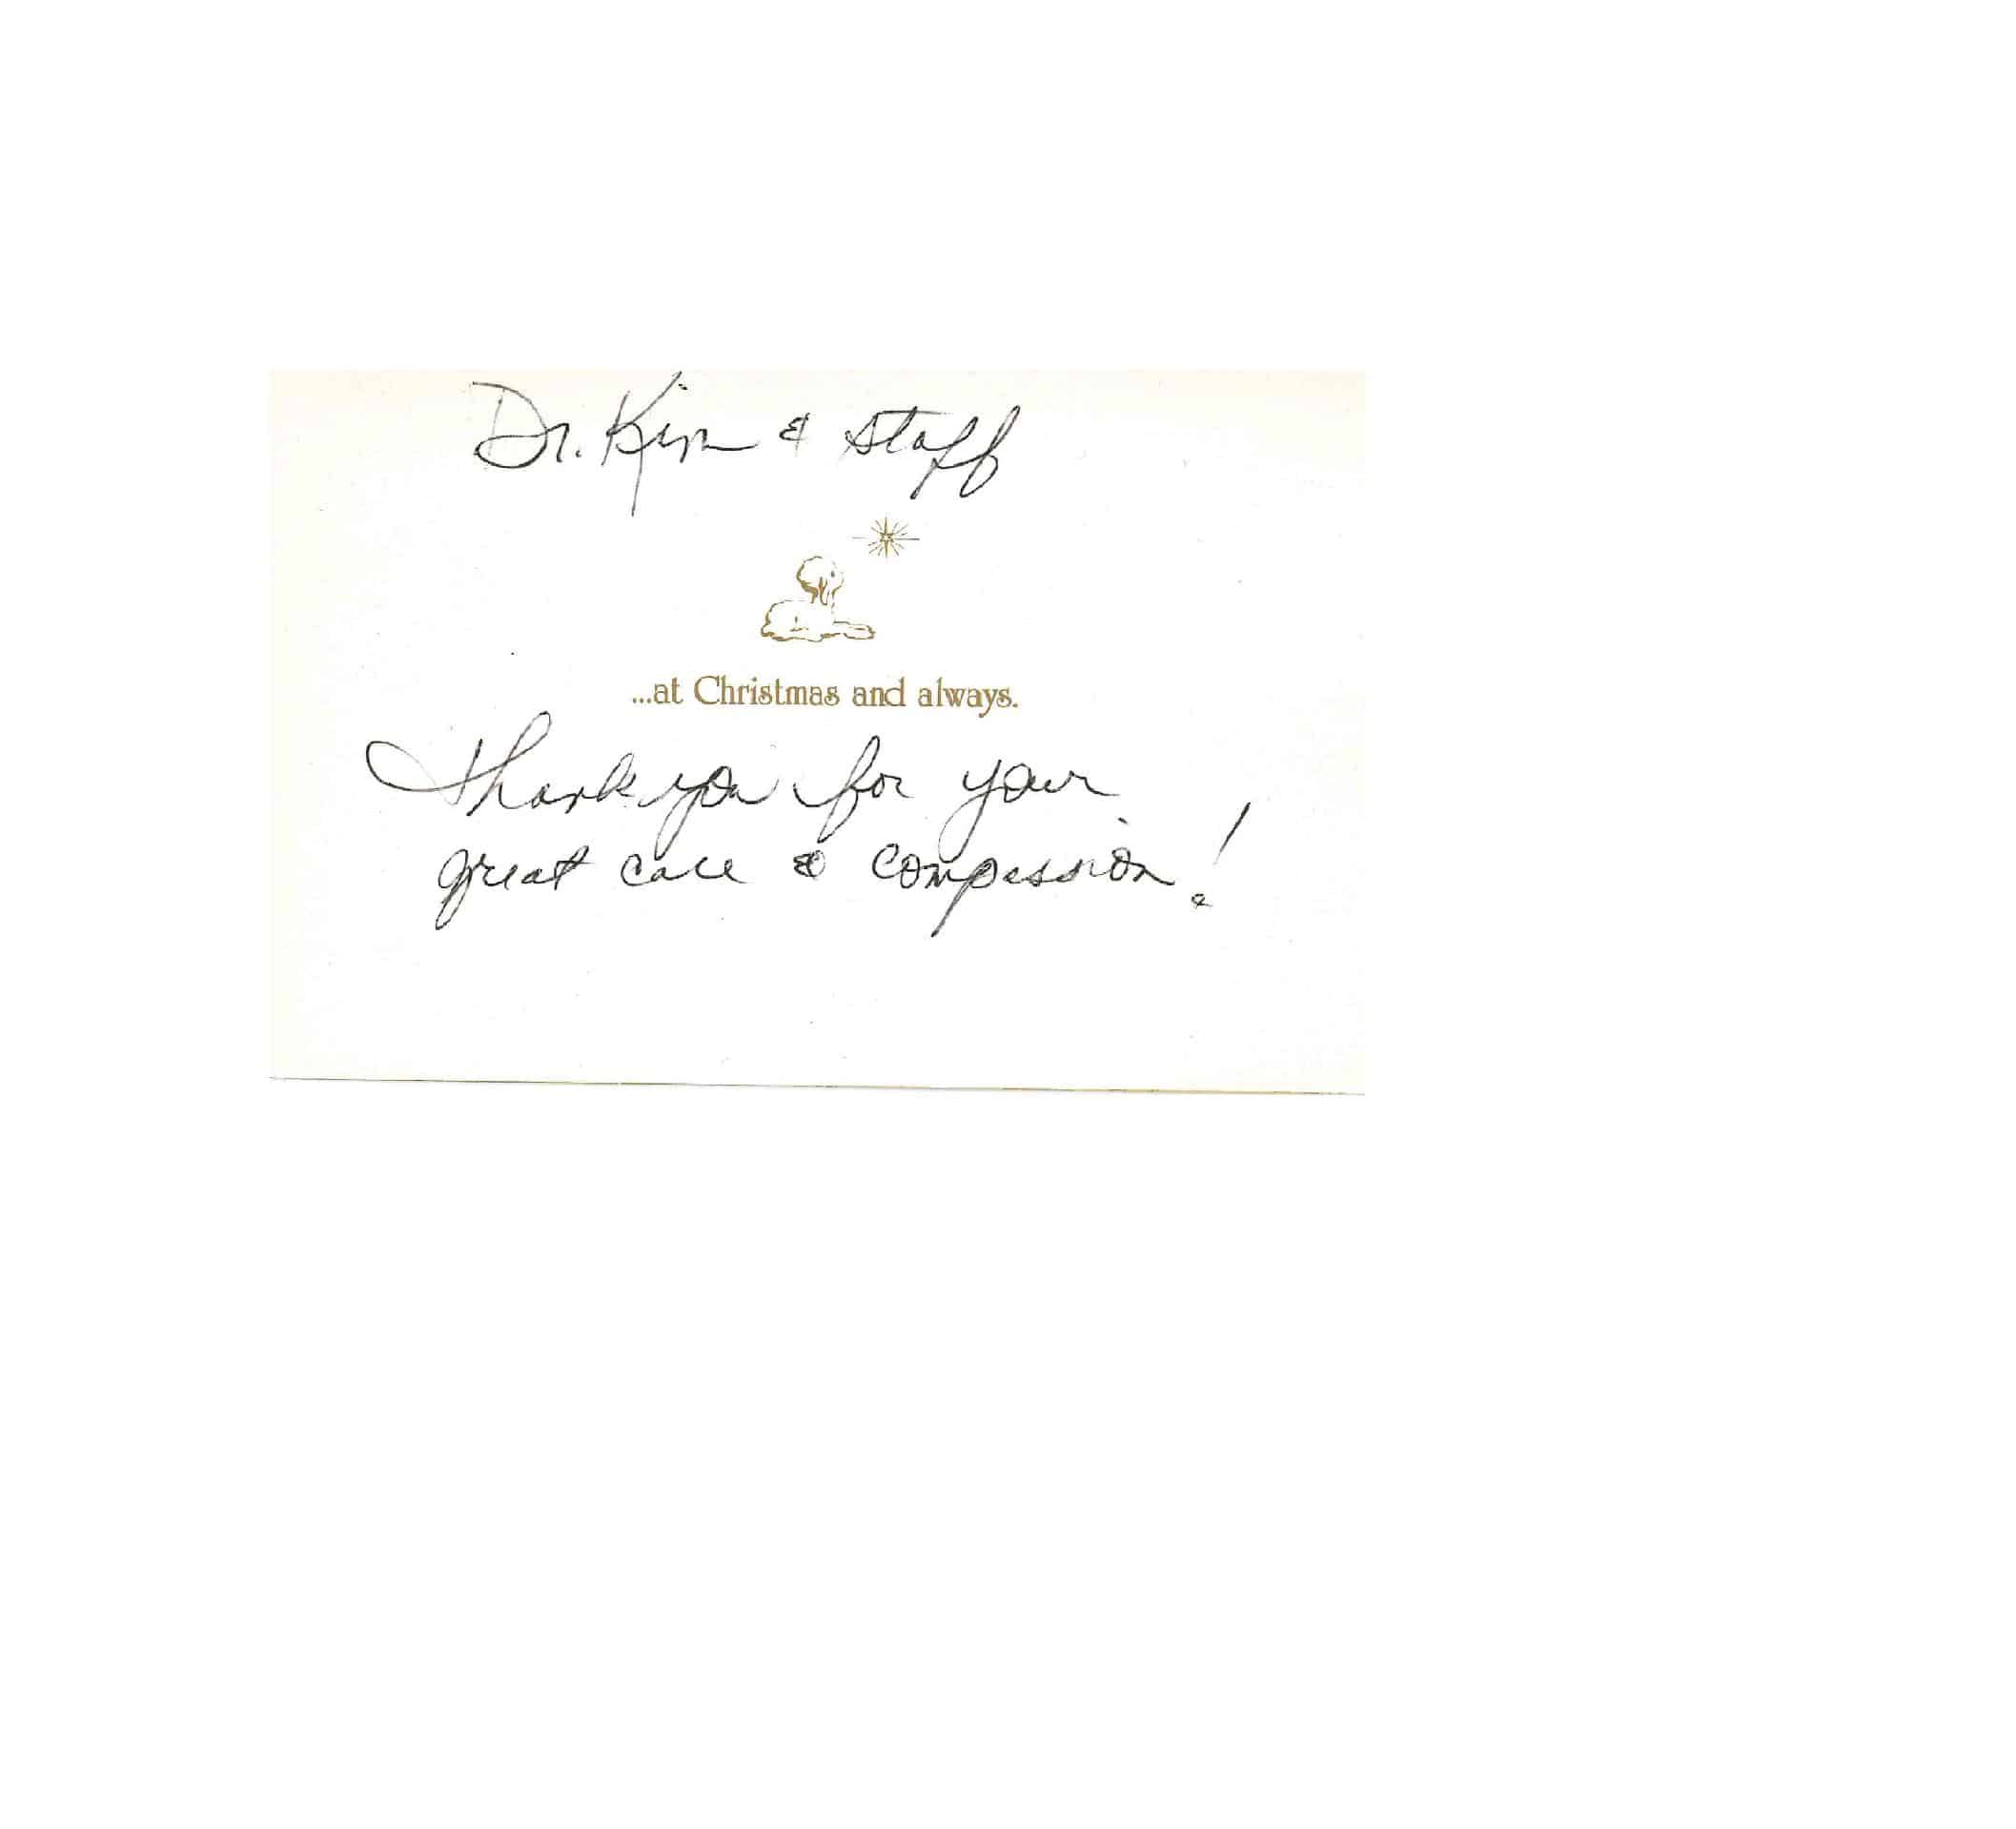 Dr. Kim & staff
...at Christmas and always.
Thank you for your
great care & compassion!